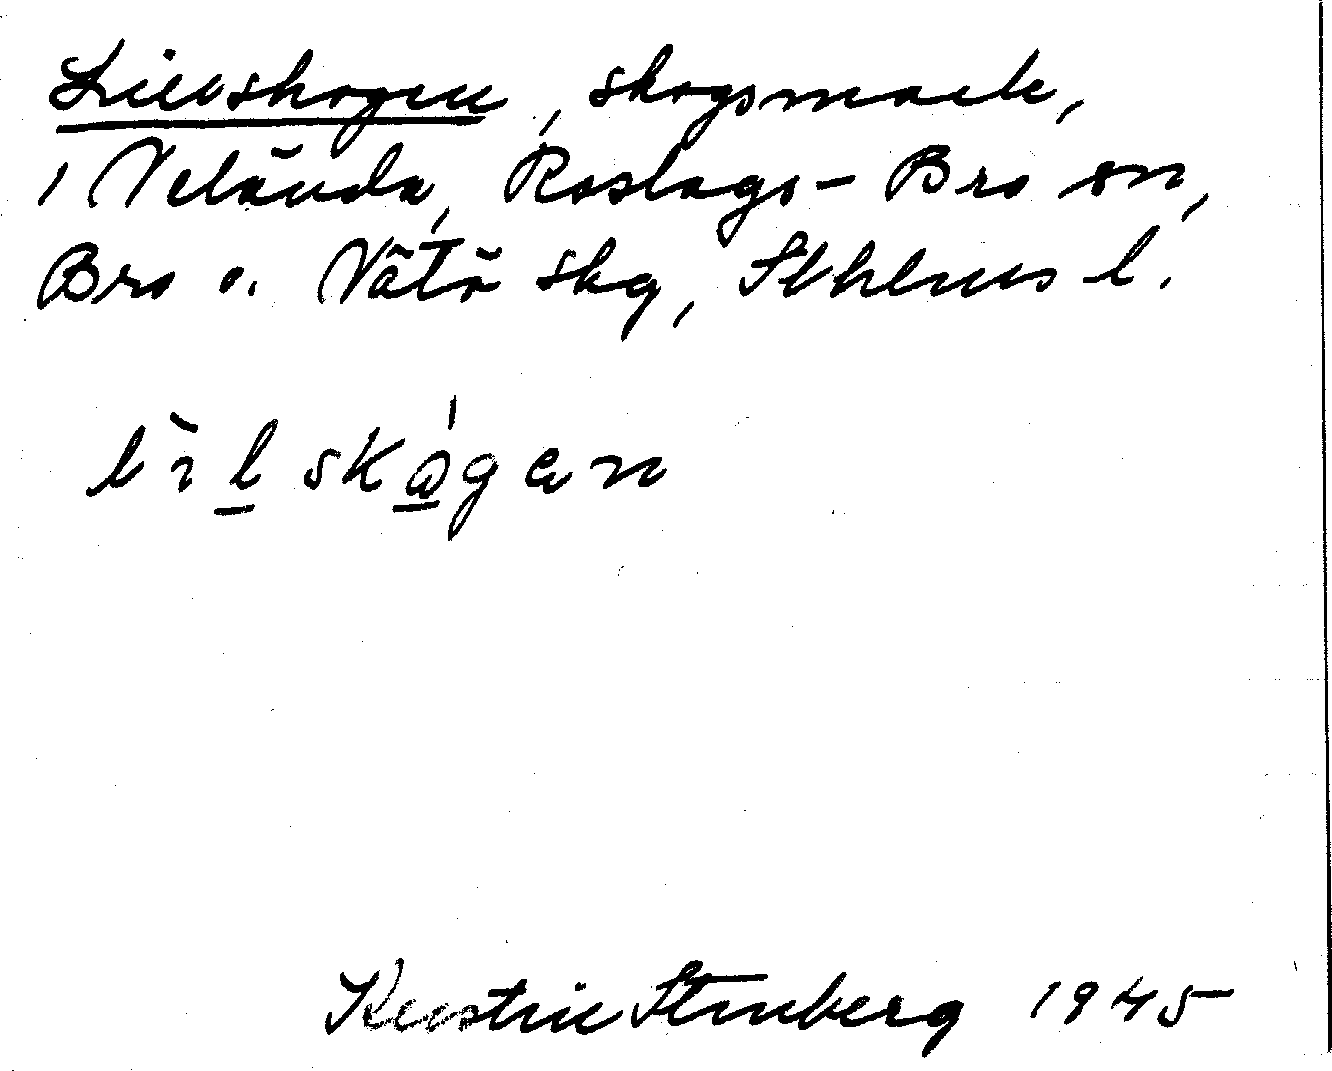 Lillskogen, skogsmark,
i Neländа, Roslags-Bro sn,
Bro o. Vätö skg, Sthlms l.
lìlskógen
Kerstin Stenberg 1945